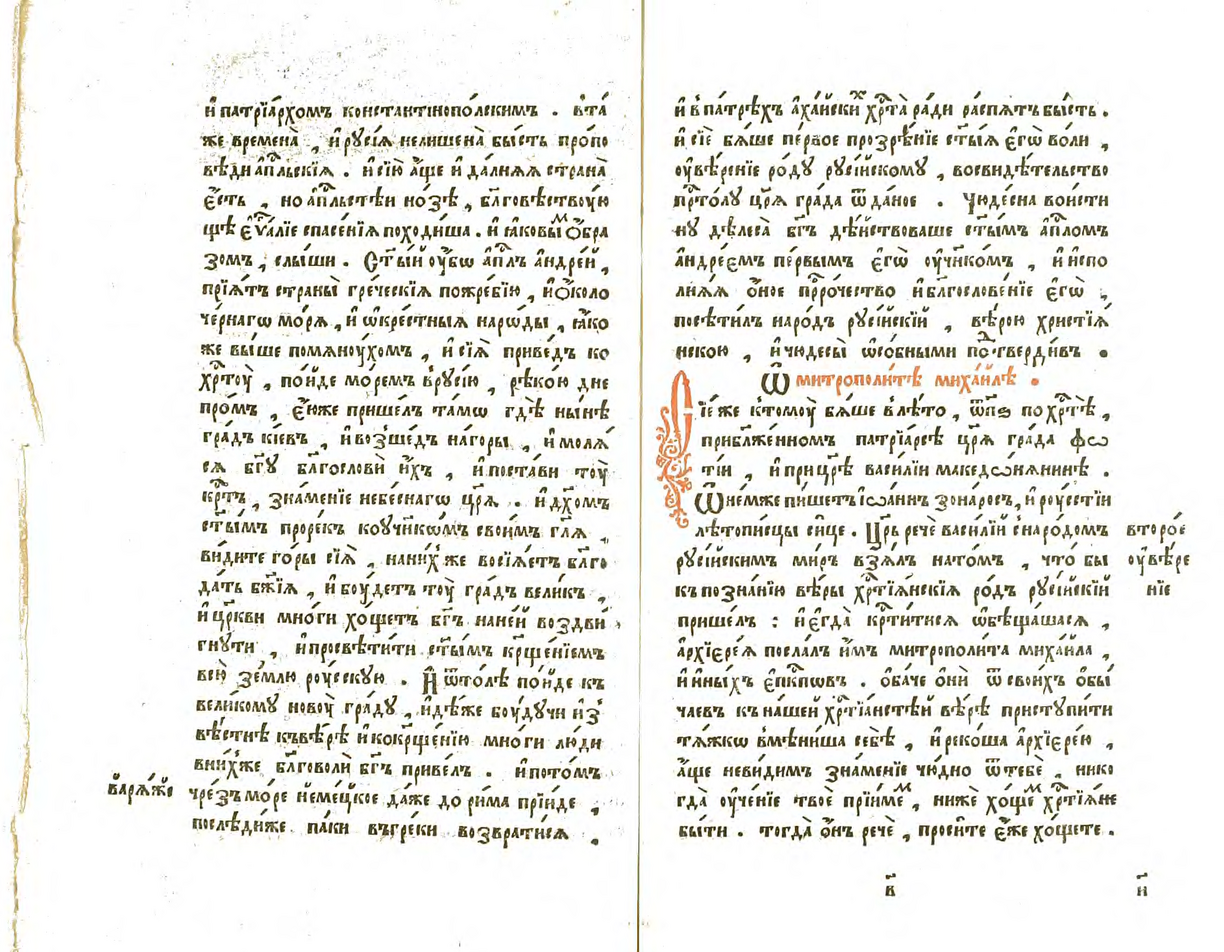 и҆ патрїа́рхомъ константїнопо́лскимъ . в̾та́
же времена̀ , и҆ рꙋсїѧ нелишена̀ бы́сть про́по
вѣди а҆пⷭ҇льскїѧ . и҆ сїю̀ а҆́ще и҆ да́лнѧѧ страна̀
є҆́сть , но а҆пⷭ҇льстѣи но́зѣ , бл҃говѣствоꙋ́ю
щѣ є҆ѵⷢ҇а́лїе спасе́нїѧ походи́ша . и҆ ꙗ҆ковы́ⷨ о҆́бра
зомъ , слы́ши . Ст҃ы́й оу҆́бѡ а҆пⷭ҇лъ а҆ндре́й ,
прїѧ́тъ страны̀ гре́ческїѧ пожре́бїю , и҆ о҆́коло
че́рнагѡ мо́рѧ , и҆ ѡ҆кре́стныѧ наро́ды , ꙗ҆́ко
же вы́ше помѧноу́хомъ , и҆ сїѧ̀ приве́дъ ко
хрⷭ҇тоу̀ , по́йде мо́ремъ в̾рꙋсі́ю , рѣко́ю дне
про́мъ , є҆́юже прише́лъ та́мѡ гдѣ̀ ны́нѣ
гра́дъ кі́евъ , и҆ воз̾ше́дъ на́горы , и҆ молѧ́
сѧ бг҃ꙋ бл҃гословѝ и҆́хъ , и҆ поста́ви тоу̀
крⷭ҇тъ , зна́менїе небе́снагѡ цр҃ѧ̀ . и҆ дх҃омъ
ст҃ы́мъ проре́къ коу҆ч҃нкѡ́мъ свои́мъ гл҃ѧ ,
ви́дите го́ры сїѧ̀ , нани́х̾же восїѧ́етъ бл҃го
да́ть бж҃їѧ , и҆ боу́детъ тоу̀ гра́дъ вели́къ ,
и҆ цр҃кви мно́ги хо́щетъ бг҃ъ на́ней воздви́
гнꙋти , и҆ просвѣти́ти ст҃ы́мъ крщ҃е́нїемъ
всю̀ зе́млю роу́сскꙋю . И҆ ѿто́лѣ по́йде къ
вели́комꙋ но́воу̀ гра́дꙋ , и҆дѣ́же боу́дꙋчи и҆з̾
вѣ́стнѣ къвѣ́рѣ и҆ кокрщ҃е́нїю мно́ги лю́ди
вни́х̾же бл҃говолѝ бг҃ъ приве́лъ . и҆ пото́мъ
варѧ́жо
чре́зъ мо́ре неме́цкое да́же до ри́ма прїи́де ,
послѣди́же па́ки въгре́ки возврати́сѧ .
и҆ в̾патрѣ́хъ а҆ха́йскиⷯ хрⷭ҇та̀ ра́ди распѧ́тъ бы́сть .
и҆ сїѐ бѧ́ше пе́рвое прозрѣ́нїе ст҃ы́ѧ є҆гѡ̀ во́ли ,
оу҆вѣре́нїе ро́дꙋ рꙋсі́йскомꙋ , восвидѣ́тельство
прⷭ҇то́лꙋ цр҃ѧ̀ гра́да ѿда́ное . Чюде́сна вои́сти
нꙋ дѣлеса̀ бг҃ъ дѣ́йствоваше ст҃ы́мъ а҆пⷭ҇ломъ
а҆ндре́емъ пе́рвымъ є҆гѡ̀ оу҆ч҃нико́мъ , и҆ и҆спо
лнѧ́ѧ о҆́ное прⷪ҇ро́чество и҆ благослове́нїе є҆гѡ̀ ,
посѣти́лъ наро́дъ рꙋсі́йскїй , вѣ́рою христїѧ́
нскою , и҆ чюдесы̀ ѡ҆со́бными по́тверди́въ .
Ѡ҆ митрополи́тѣ миха́илѣ .
Сїе́ же к̾томоу̀ бѧ́ше в̾лѣ́то , ѿпѕ по хрⷭ҇тѣ̀ ,
приблаже́нномъ патрїа́рсѣ цр҃ѧ̀ гра́да фѡ́
тїи , и҆ прицр҃ѣ̀ васи́лїи македѡ́нѧнинѣ .
Ѡ҆не́мже пи́шетъ і҆ѡа́ннъ зона́росъ, и҆ роу́стїи
лѣтопи́сцы си́це . Цр҃ь речѐ васи́лїй с̾наро́домъ
второ́е
рꙋсі́йскимъ ми́ръ взѧ́лъ на́томъ , что́ бы
оу҆вѣ́ре
къпозна́нїю вѣ́ры хрⷭ҇тїѧ́нскїѧ ро́дъ рꙋсі́йскїй
нїе
прише́лъ : и҆ є҆гда̀ крⷭ҇ти́тисѧ ѡ҆бѣща́шасѧ ,
а҆рхїере́ѧ посла́лъ и҆́мъ митрополи́та миха́ила ,
и҆ и҆ны́хъ є҆пⷭ҇кпѡвъ . ѻ҆ба́че ѻ҆нѝ ѿ свои́хъ ѻ҆бы́
чаевъ къ на́шей хрⷭ҇тїа́нстѣй вѣ́рѣ пристꙋпи́ти
тѧ́жкѡ в̾мѣни́ша себѣ̀ , и҆ реко́ша а҆рхїере́ю ,
а҆́ще неви́димъ зна́менїе чю́дно ѿ тебѐ , нико
гда̀ оу҆че́нїе твоѐ прїи́меⷨ , нижѐ хо́щеⷨ хрⷭ҇тїѧ́не
бы́ти . тогда̀ ѻ҆́нъ речѐ , проси́те є҆́же хо́щете .
в҃ и҃